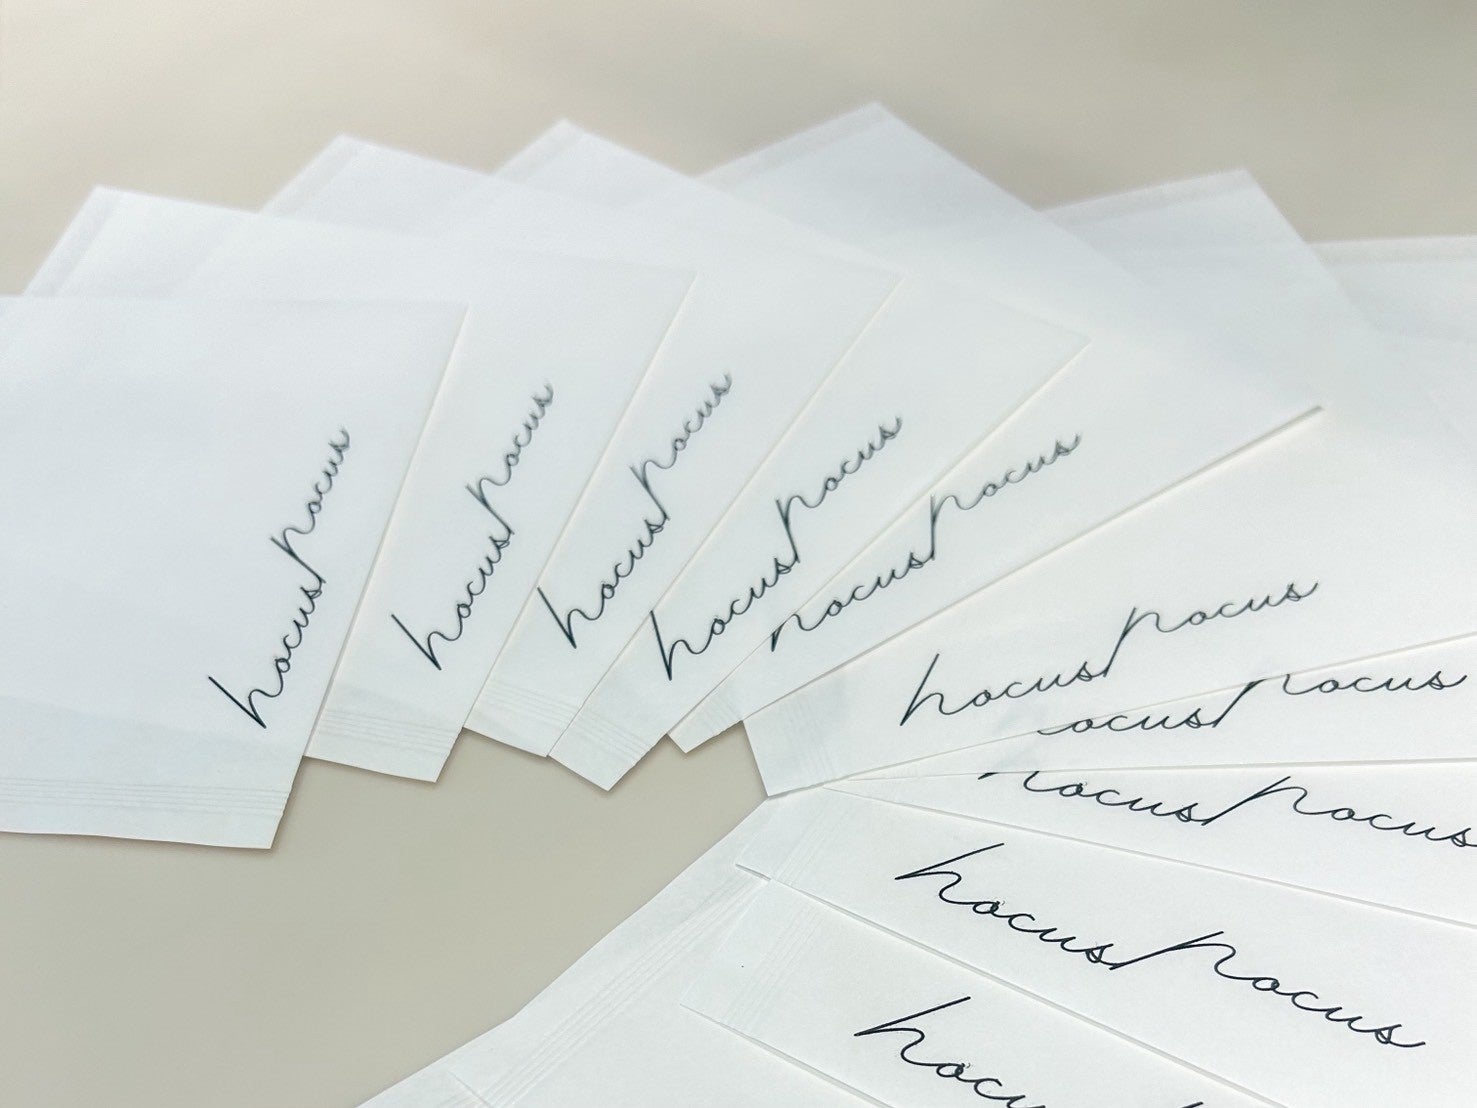 hocus pocus
hocus pocus
hocus pocus
hocus pocus
hocus pocus
hocus pocus
ocus pocus
hocus pocus
hocus pocus
hocu